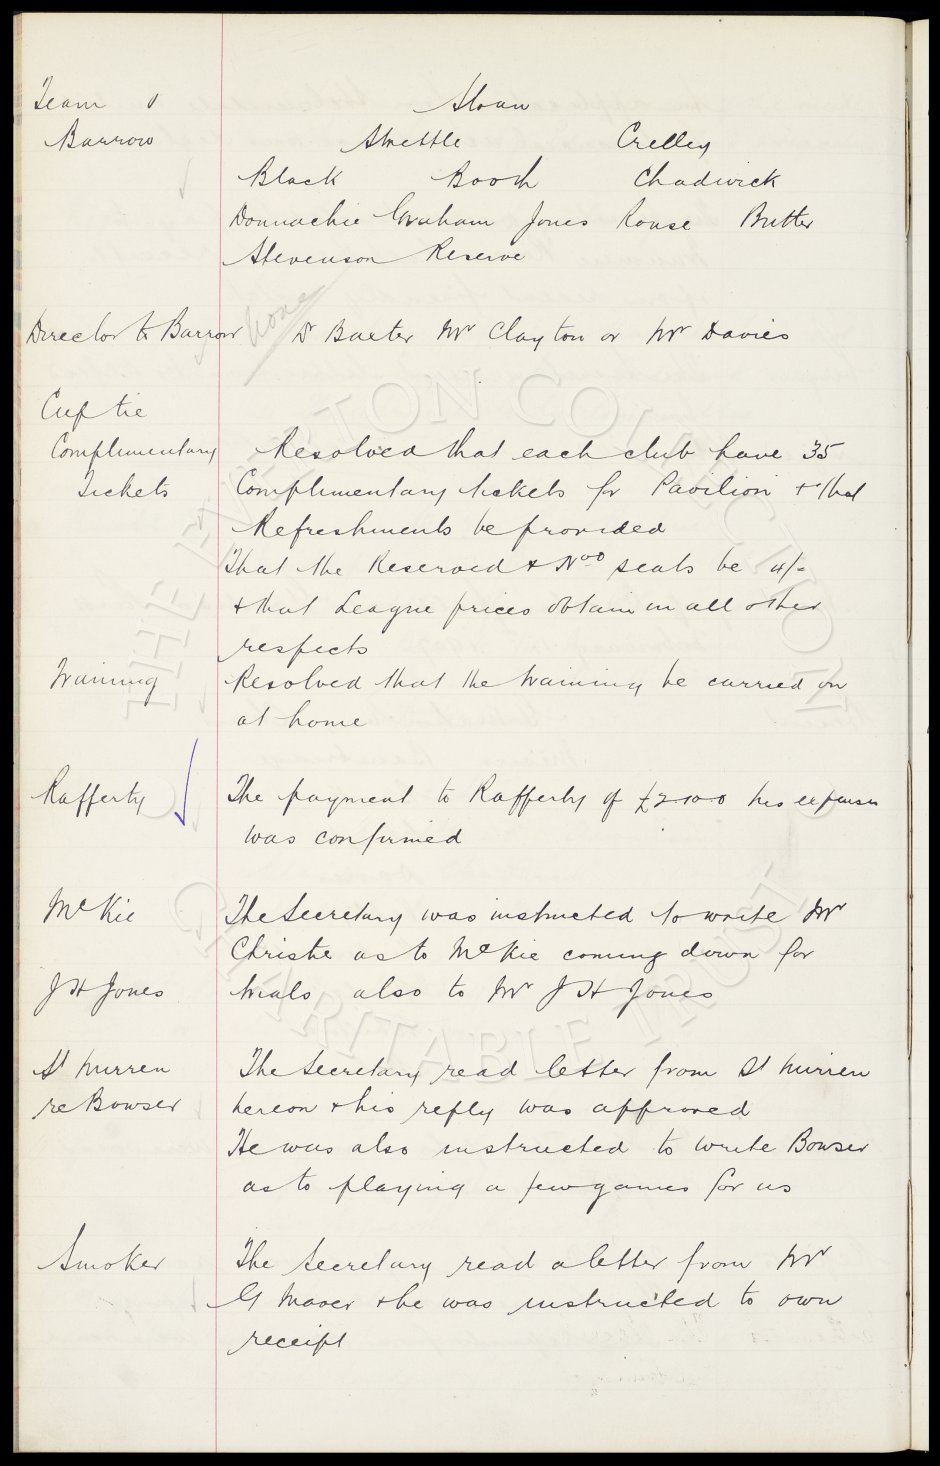 Team v Sloan
Barrow Strettle Crelley
Black Booth Chadwick
Donnachie Graham Jones Rouse Butter
Stevenson Reserve
Director to Barrow none Dr Baxter Mr Clayton or Mr Davies
Cup tie
Complimentary Resolved that each club have 35
Tickets Complimentary tickets for Pavilion & that
Refreshments be provided
That the Reserved & Nod seats be 4/-
& that League prices obtain in all other
respects
Training Resolved that the training be carried on
at home
Rafferty The payment to Rafferty of £2-10-0 his expenses
was confirmed
McKie The Secretary was instructed to write Mr
Christie as to McKie coming down for
J H Jones trials also to Mr J H Jones
St Mirren The Secretary read letter from St Mirren
re Bowser hereon & his reply was approved
He was also instructed to write Bowser
as to playing a few games for us
Smoker The Secretary read a letter from Mr
G & he was instructed to own
receipt
THE EVERTON COLLECTION
CHARITABLE TRUST